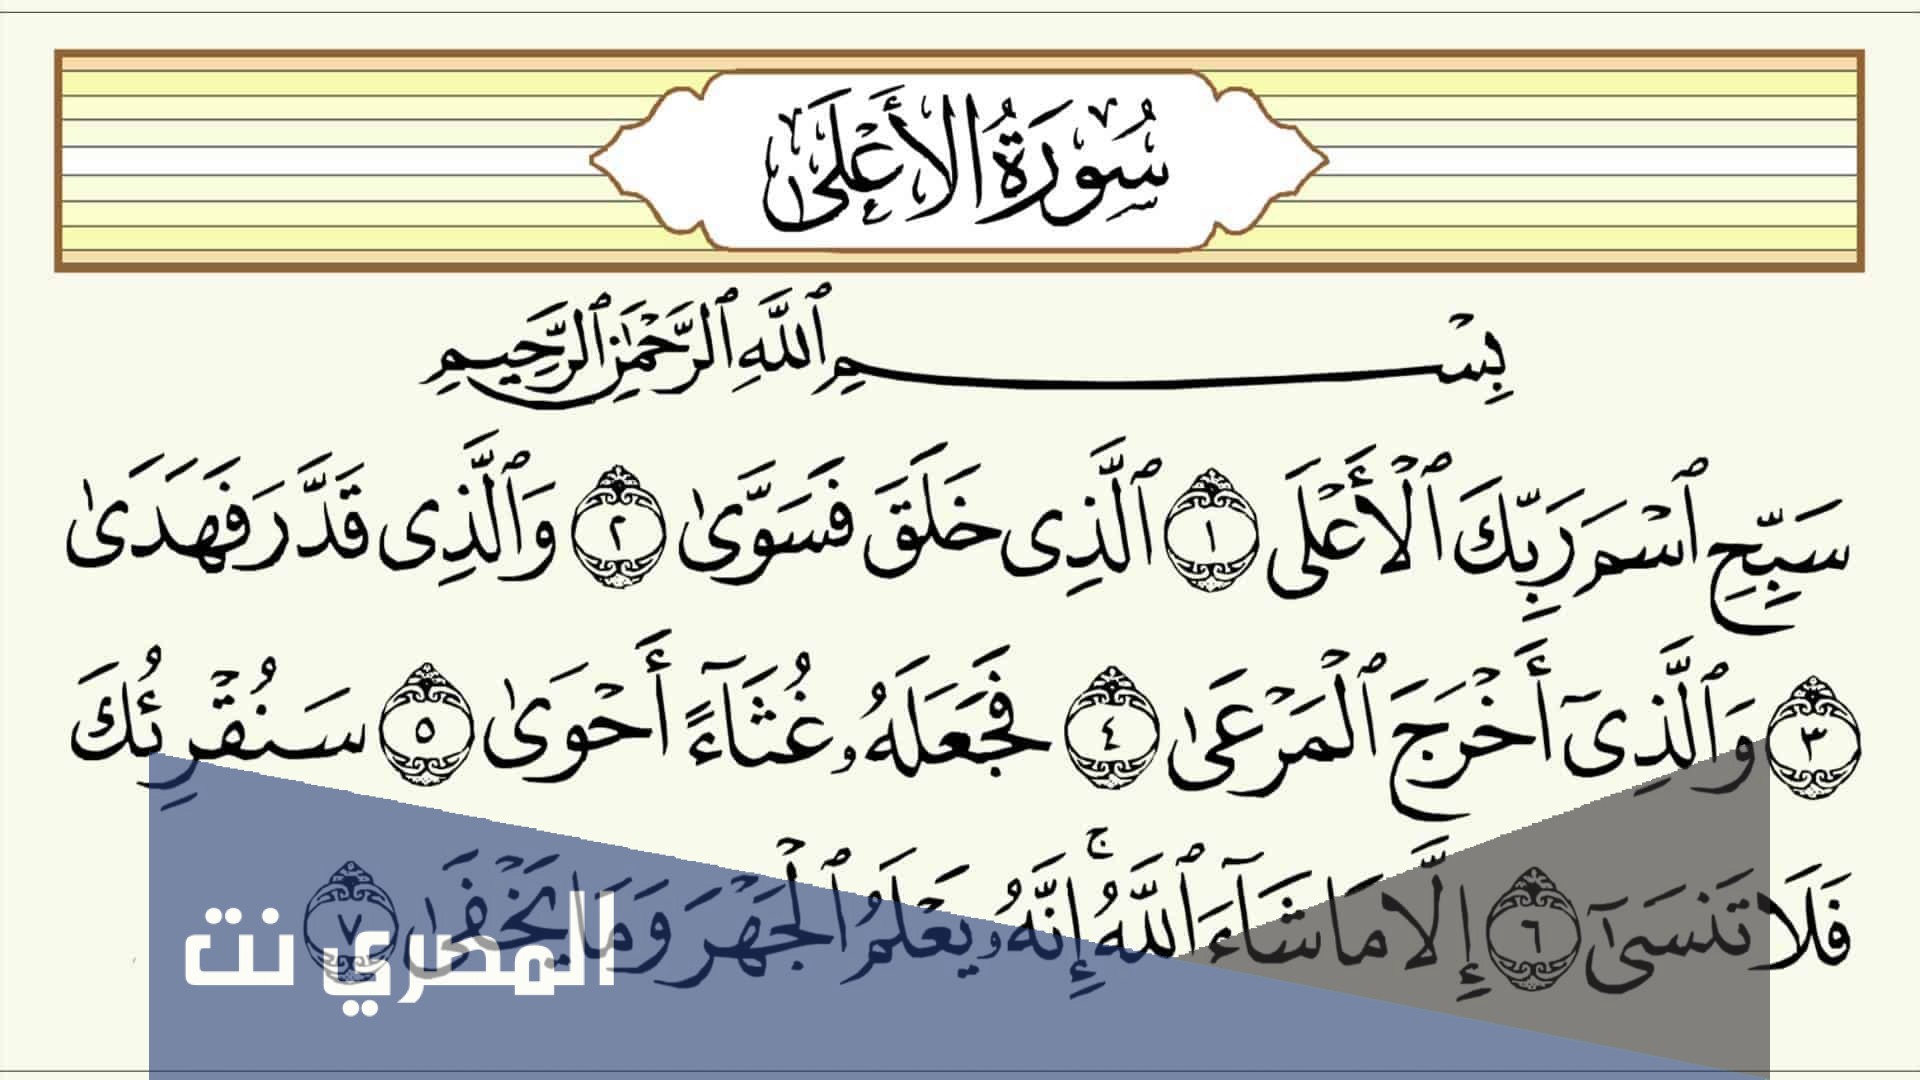 سُورَةُ الأَعْلَىٰ
بِسْمِ ٱللَّهِ ٱلرَّحْمَٰنِ ٱلرَّحِيمِ
سَبِّحِ ٱسْمَ رَبِّكَ ٱلْأَعْلَى ١ ٱلَّذِى خَلَقَ فَسَوَّىٰ ٢ وَٱلَّذِى قَدَّرَ فَهَدَىٰ
٣ وَٱلَّذِىٓ أَخْرَجَ ٱلْمَرْعَىٰ ٤ فَجَعَلَهُۥ غُثَآءً أَحْوَىٰ ٥ سَنُقْرِئُكَ
فَلَا تَنسَىٰٓ ٦ إِلَّا مَا شَآءَ ٱللَّهُ ۚ إِنَّهُۥ يَعْلَمُ ٱلْجَهْرَ وَمَا يَخْفَىٰ ٧
المصري نت